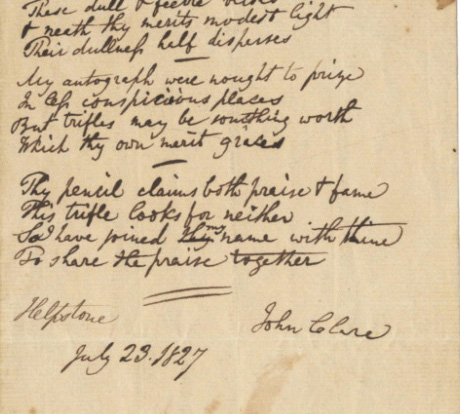 These dull & feeble verses
& neath thy merits modest light
Their dullness half disperses
My autograph were nought to prize
In less conspicious places
But trifles may be somthing worth
Which thy own merit graces
Thy pencil claims both praise & fame
This trifle looks for neither
have joined name with thine
To share the praise together
Helpstone
John Clare
July 23. 1827